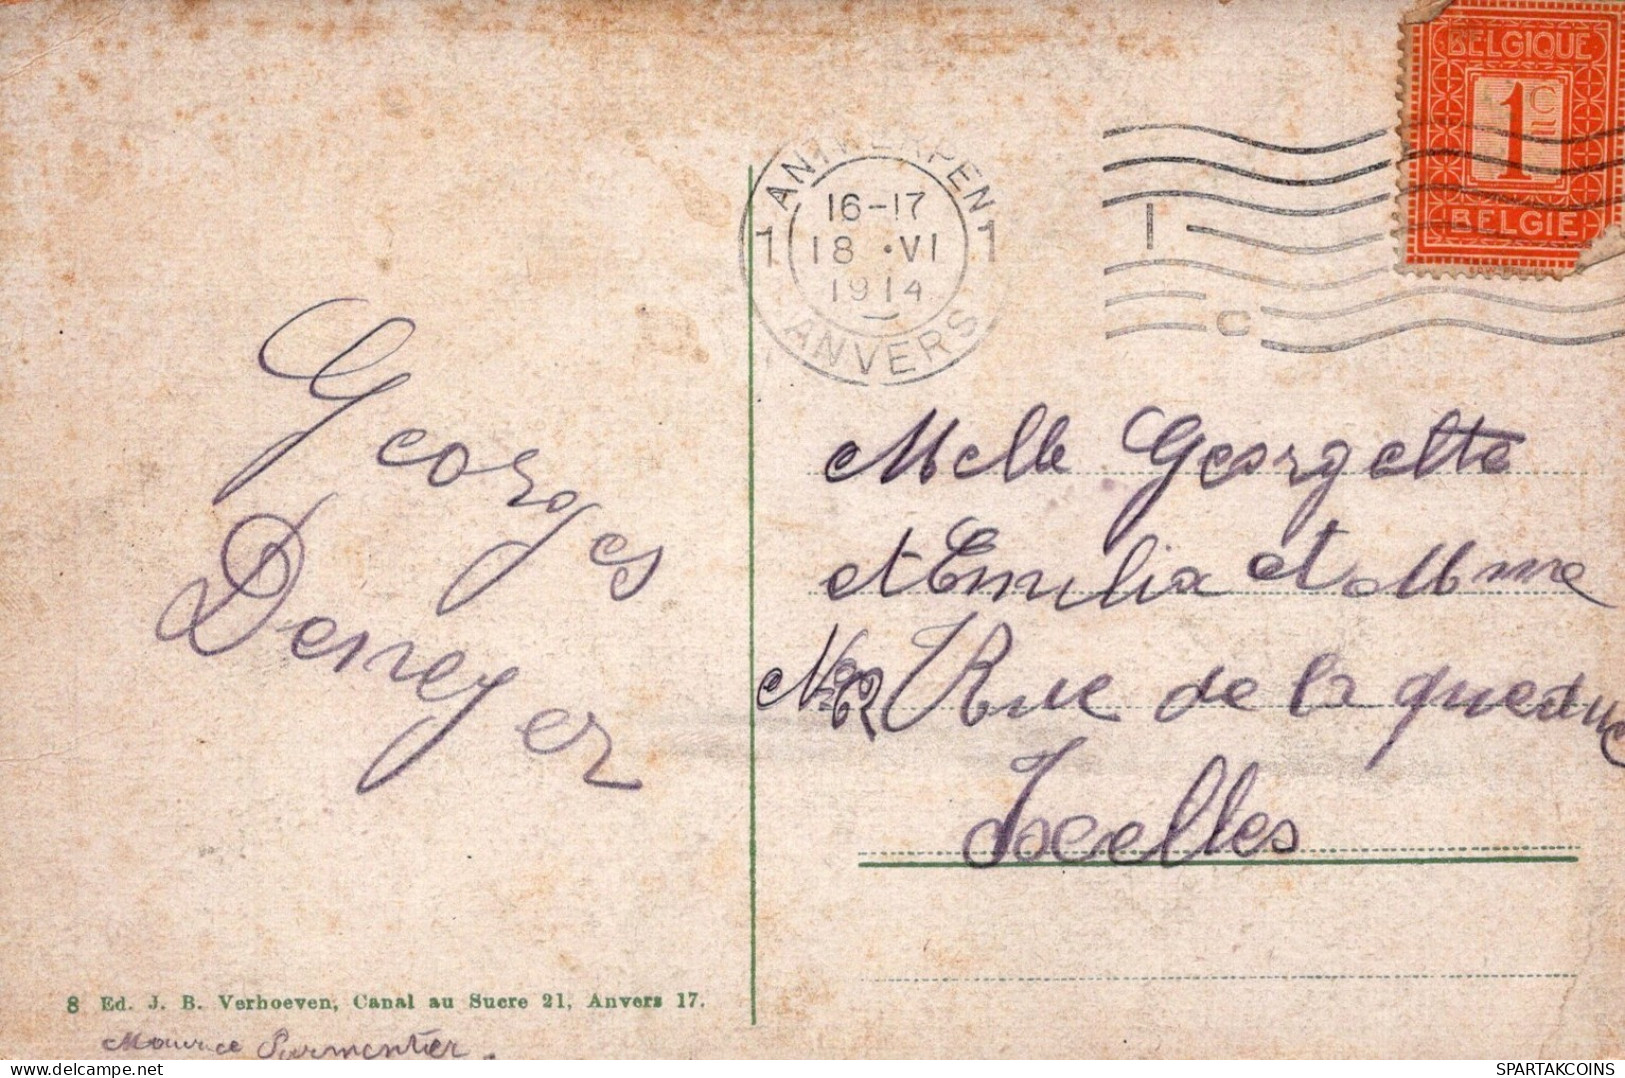 BELGIQUE
1 C
BELGIE
ANTWERPEN
16-17
1 18 • VI 1
1914
ANVERS
1
C
Georges
Deneyer
Melle Georgette
et Emilia et Mme
Rue de la queduc
Ixelles
8 Ed. J. B. Verhoeven, Canal au Sucre 21, Anvers 17.
Maurice Parmentier.
SPARTAKCOINS